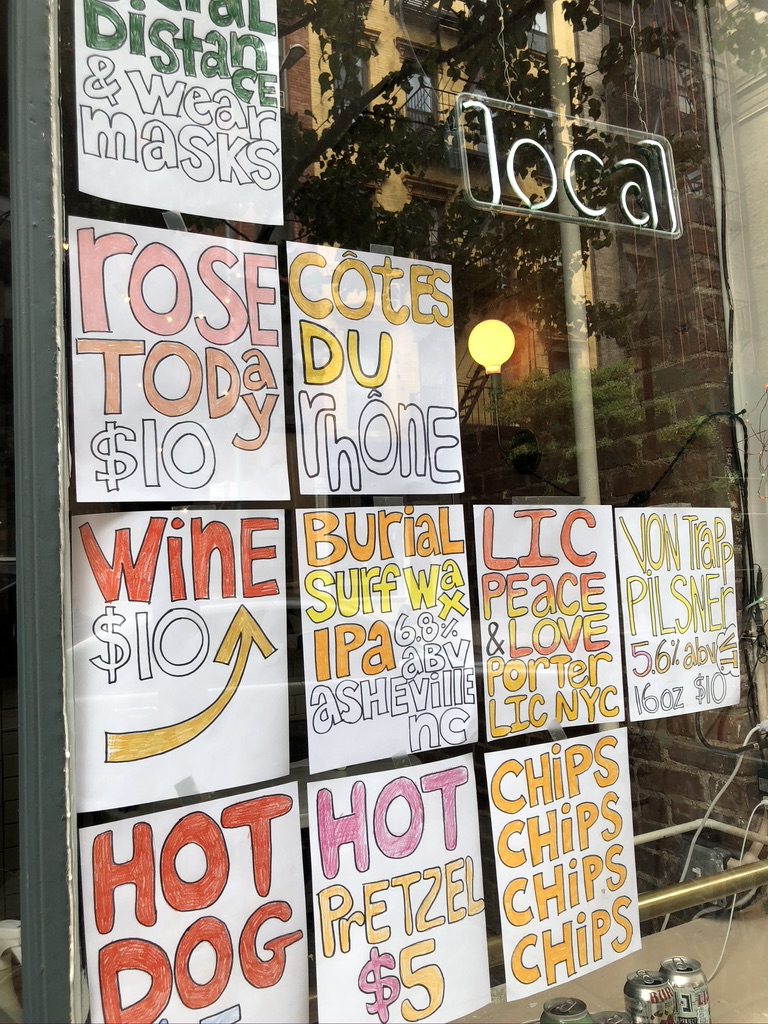 Distance
& wear
masks
local
rose
Today
$10
CÔtes
DU
rhÔNE
Wine
$10
Burial
Surf wax
IPa 6.8%
aBV
asHeville
nc
LIC
Peace
& LOVE
Porter
LIC NYC
VON Trapp
PiLSNer
5.6% abv
16oz $10
HOT
DOG
HOT
PreTZEL
$5
CHiPS
CHiPS
CHiPS
CHiPS